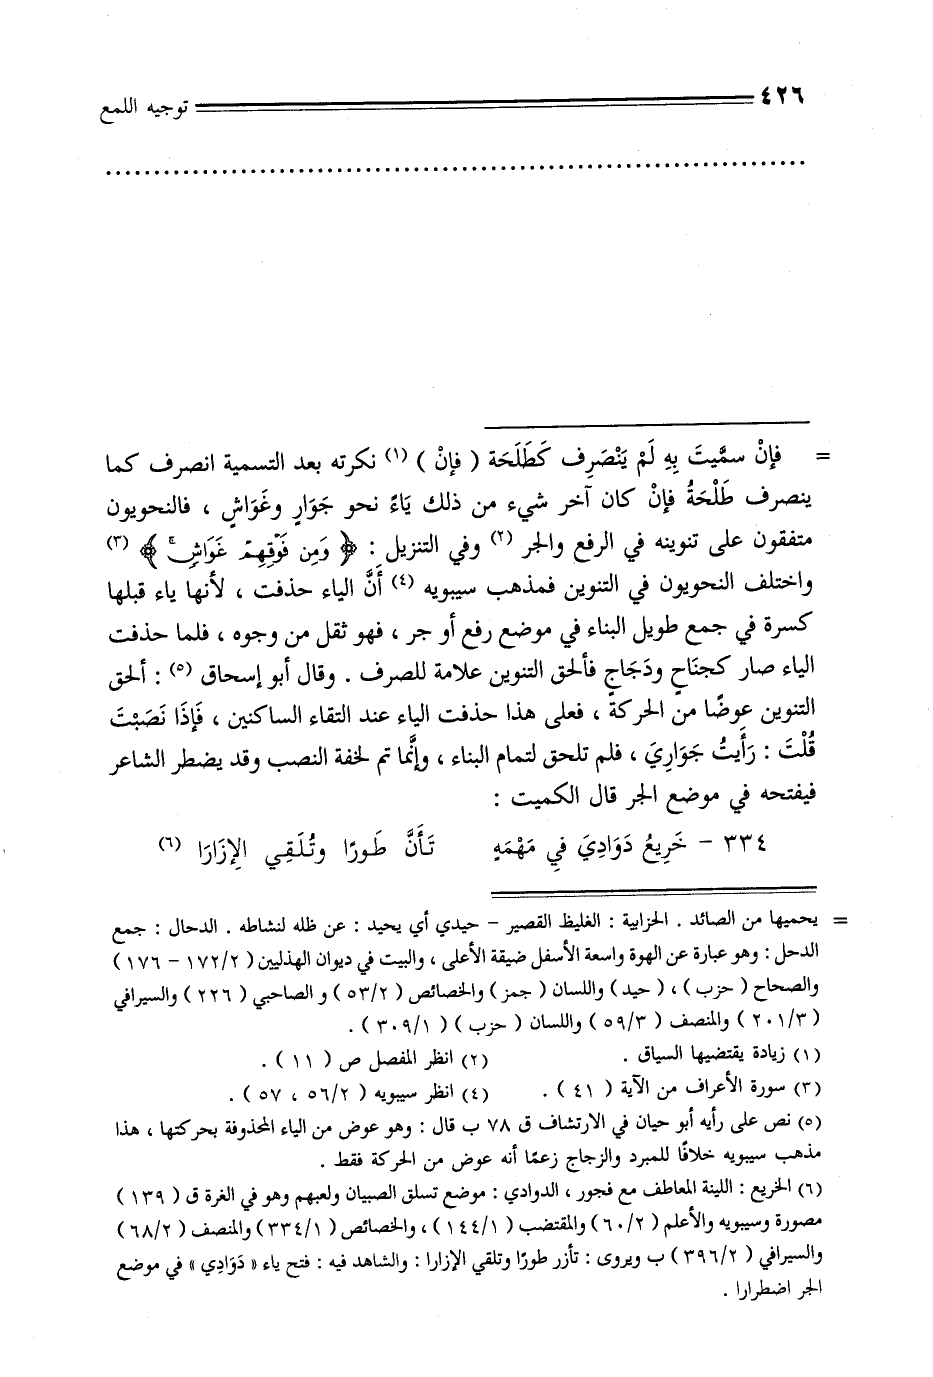 ٤٢٦ توجيه اللمع
= فإنْ سمَّيتَ بِهِ لَمْ يَنْصَرِف كَطَلَحَة ( فإنْ ) (١) نكرته بعد التسمية انصرف كما
ينصرف طَلْحَةُ فإنْ كان آخر شيء من ذلك يَاءً نحو جَوَارٍ وغَوَاشٍ ، فالنحويون
متفقون على تنوينه في الرفع والجر (٢) وفي التنزيل : ﴿ وَمِن فَوْقِهِمْ غَوَاشٍ ۚ ﴾ (٣)
واختلف النحويون في التنوين فمذهب سيبويه (٤) أَنَّ الياء حذفت ، لأنها ياء قبلها
كسرة في جمع طويل البناء في موضع رفع أو جر ، فهو ثقل من وجوه ، فلما حذفت
الياء صار كجنَاحٍ ودَجَاجٍ فألحق التنوين علامة للصرف . وقال أبو إسحاق (٥) : ألحق
التنوين عوضًا من الحركة ، فعلى هذا حذفت الياء عند التقاء الساكنين ، فَإِذَا نَصَبْتَ
قُلْتَ : رَأَيتُ جَوَارِيَ ، فلم تلحق لتمام البناء ، وإنَّما تم لخفة النصب وقد يضطر الشاعر
فيفتحه في موضع الجر قال الكميت :
٣٣٤ – خَرِيعُ دَوَادِيَ فِي مَهْمَهٍ تَأَنَّ طَورًا وتُلَقِي الإِزَارَا (٦)
= يحميها من الصائد . الحزابية : الغليظ القصير – حيدي أي يحيد : عن ظله لنشاطه . الدحال : جمع
الدحل : وهو عبارة عن الهوة واسعة الأسفل ضيقة الأعلى ، والبيت في ديوان الهذليين ( ١٧٢/٢ – ١٧٦ )
والصحاح ( حزب ) ، ( حيد ) واللسان ( جمز ) والخصائص ( ٥٣/٢ ) و الصاحبي ( ٢٢٦ ) والسيرافي
( ٢٠١/٣ ) والمنصف ( ٥٩/٣ ) واللسان ( حزب ) ( ٣٠٩/١ ) .
(١) زيادة يقتضيها السياق . (٢) انظر المفصل ص ( ١١ ) .
(٣) سورة الأعراف من الآية ( ٤١ ) . (٤) انظر سيبويه ( ٥٦/٢ ، ٥٧ ) .
(٥) نص على رأيه أبو حيان في الارتشاف ق ٧٨ ب قال : وهو عوض من الياء المحذوفة بحركتها ، هذا
مذهب سيبويه خلافًا للمبرد والزجاج زعمًا أنه عوض من الحركة فقط .
(٦) الخريع : اللينة المعاطف مع فجور ، الدوادي : موضع تسلق الصبيان ولعبهم وهو في الغرة ق ( ١٣٩ )
مصورة وسيبويه والأعلم ( ٦٠/٢ ) والمقتضب ( ١٤٤/١ ) ، والخصائص ( ٣٣٤/١ ) والمنصف ( ٦٨/٢ )
والسيرافي ( ٣٩٦/٢ ) ب ويروى : تأزر طورًا وتلقي الإزارا : والشاهد فيه : فتح ياء « دَوَادِي » في موضع
الجر اضطرارا .